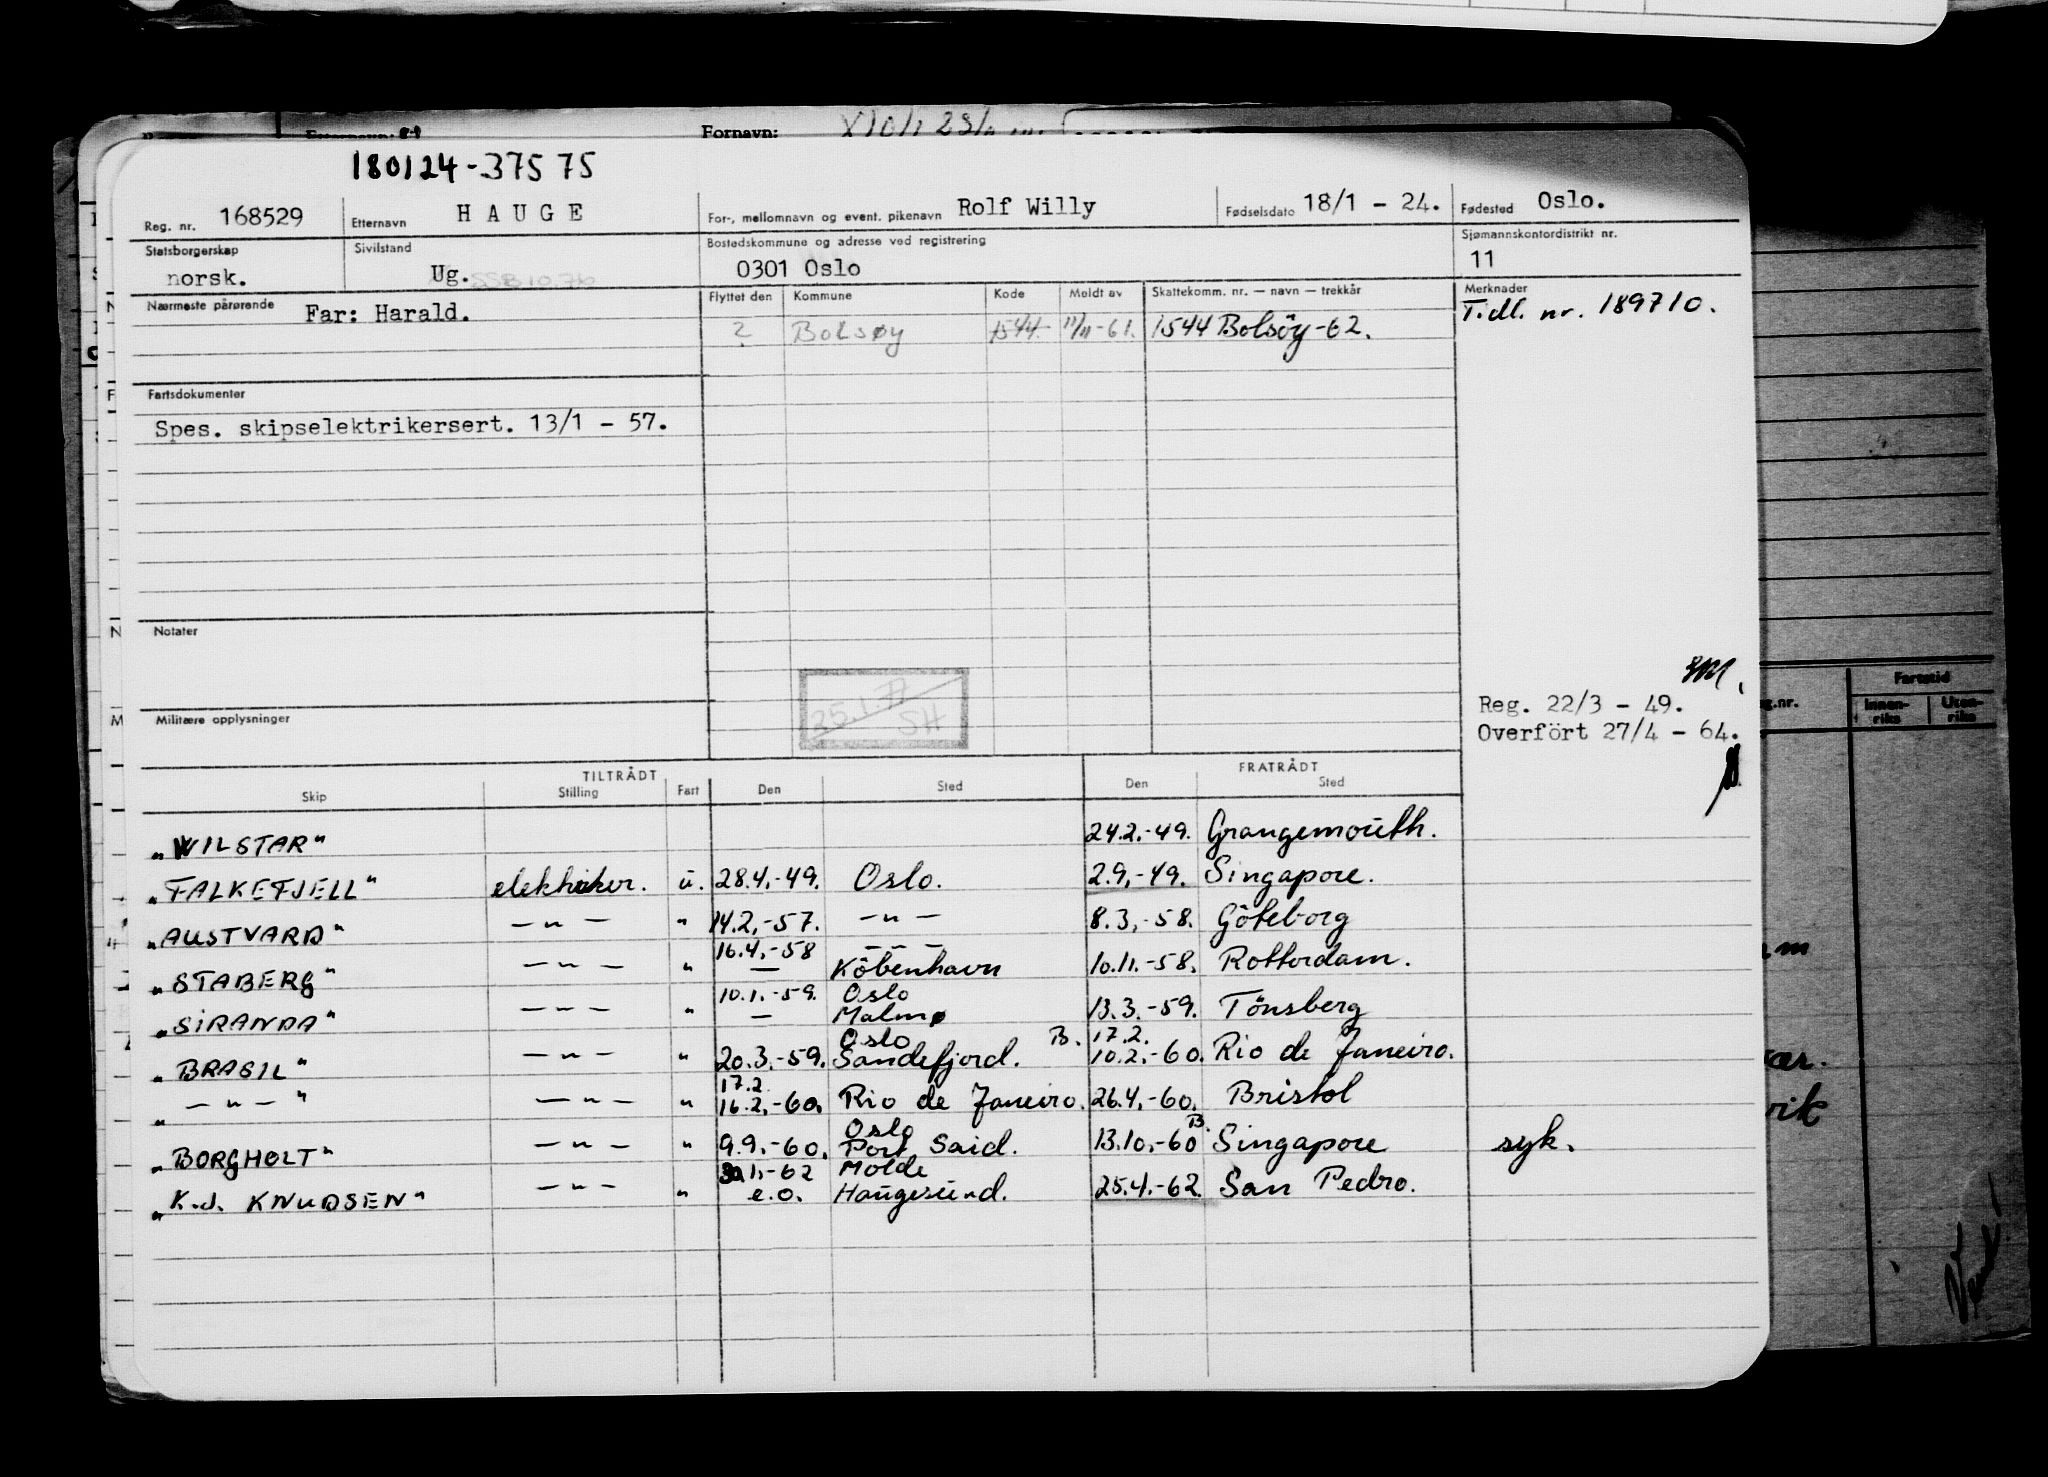 Fornavn:
180124-37575
Reg. nr. 168529 Etternavn HAUGE For-, mellomnavn og event. pikenavn Rolf Willy Fødselsdato 18/1 - 24. Fødested Oslo.
Statsborgerskap norsk. Sivilstand Ug. SSB 10.76 Bostedskommune og adresse ved registrering 0301 Oslo Sjømannskontordistrikt nr. 11
Nærmeste pårørende Far: Harald. Flyttet den Kommune Kode Meldt av Skattekomm. nr. — navn — trekkår Merknader
? Bolsøy 1544 11/11-61. 1544 Bolsöy-62. Tidl. nr. 189710.
Fartsdokumenter
Spes. skipselektrikersert. 13/1 - 57.
Notater
25.1.77 SH
Militære opplysninger
Reg. 22/3 - 49.
Overfört 27/4 - 64.
TILTRÅDT FRATRÅDT
Skip Stilling Fart Den Sted Den Sted
"WILSTAR" 24.2.-49. Grangemouth.
"FALKEFJELL" elektriker. u. 28.4.-49. Oslo. 2.9.-49. Singapore.
"AUSTVARD" -"- " 14.2.-57. -"- 8.3.-58. Göteborg
16.4.-58 - - -
"STABERG" -"- " — Köbenhavn 10.11.-58. Rotterdam.
10.1.-59. Oslo
"SIRANDA" -"- " — Malmø 13.3.-59. Tönsberg
Oslo B. 17.2.
"BRASIL" -"- " 20.3.-59. Sandefjord. 10.2.-60. Rio de Janeiro.
17.2
"-"-" -"- " 16.2.-60. Rio de Janeiro. 26.4.-60. Bristol
Oslo B.
"BORGHOLT" -"- " 9.9.-60. Port Said. 13.10.-60 Singapore syk.
1.-62 Molde
"K.J. KNUDSEN" -"- " e.o. Haugesund. 25.4.-62. San Pedro.
Fartstid
Innen-riks Uten-riks